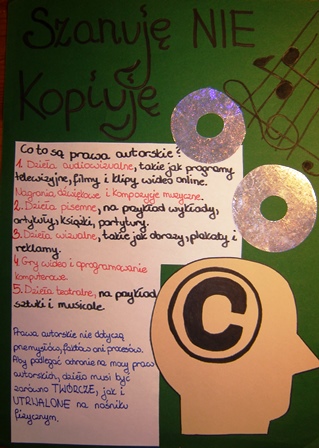 Szanuję NIE
Kopiuję
Co to są prawa autorskie?
1. Dzieła audiowizualne, takie jak programy
telewizyjne, filmy i klipy wideo online.
Nagrania dźwiękowe i kompozycje muzyczne.
2. Dzieła pisemne, na przykład wykłady,
artykuły, książki, partytury.
3. Dzieła wizualne, takie jak obrazy, plakaty i
reklamy.
4 Gry wideo i oprogramowanie
komputerowe.
5. Dzieła teatralne, na przykład
sztuki i musicale.
Prawa autorskie nie dotyczą
pomysłów, faktów ani procesów.
Aby podlegać ochronie na mocy praw
autorskich, dzieło musi być
zarówno TWÓRCZE, jak i
UTRWALONE na nośniku
fizycznym.
C